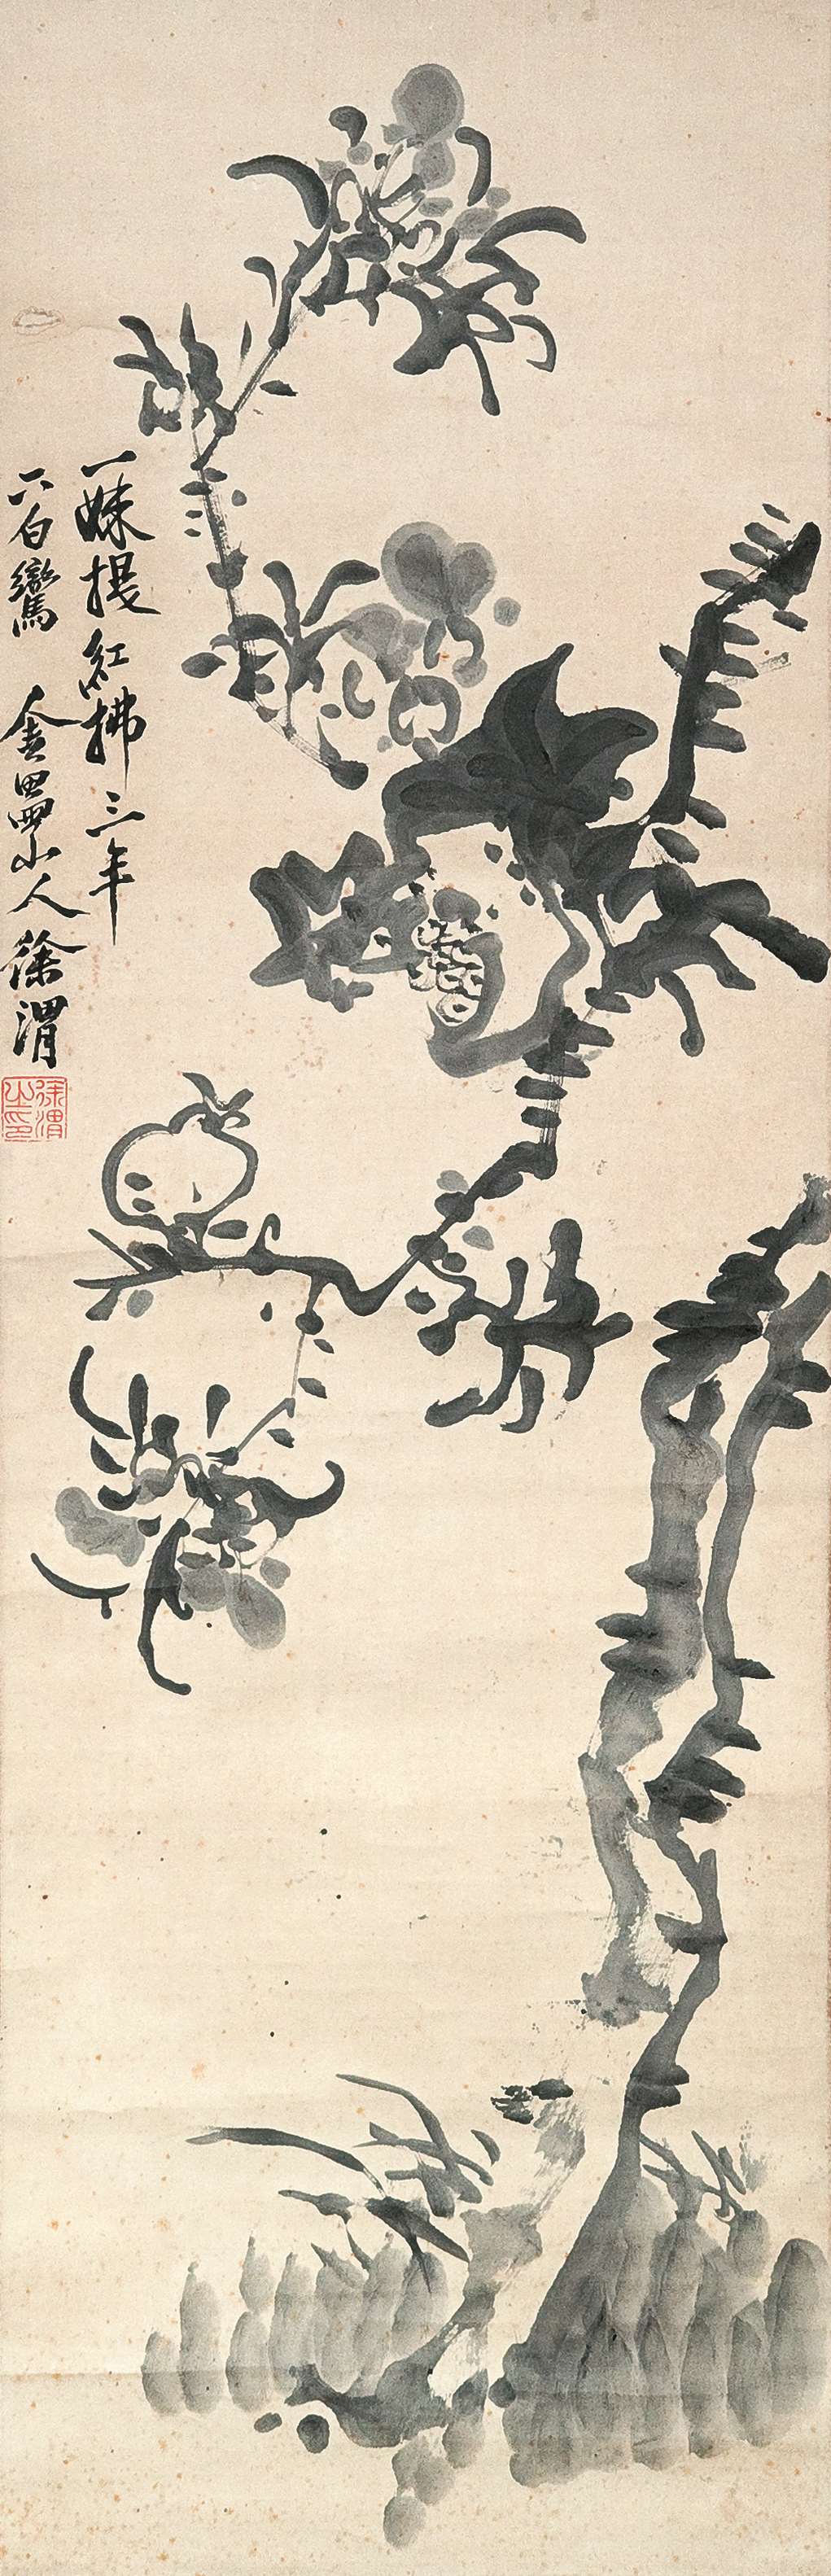 一妹提紅拂三年
六白鸞 金畾山人徐渭
徐渭之印